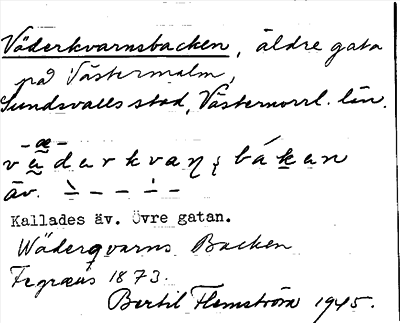 Väderkvarnsbacken, äldre gata
på Västermalm,
Sundsvalls stad, Västernorrl. län.
-æ-
vädarkvaɳʂbákan
äv.
Kallades äv. Övre gatan.
Wäderqvarns Backen
1873.
Bertil Flemström 1945.